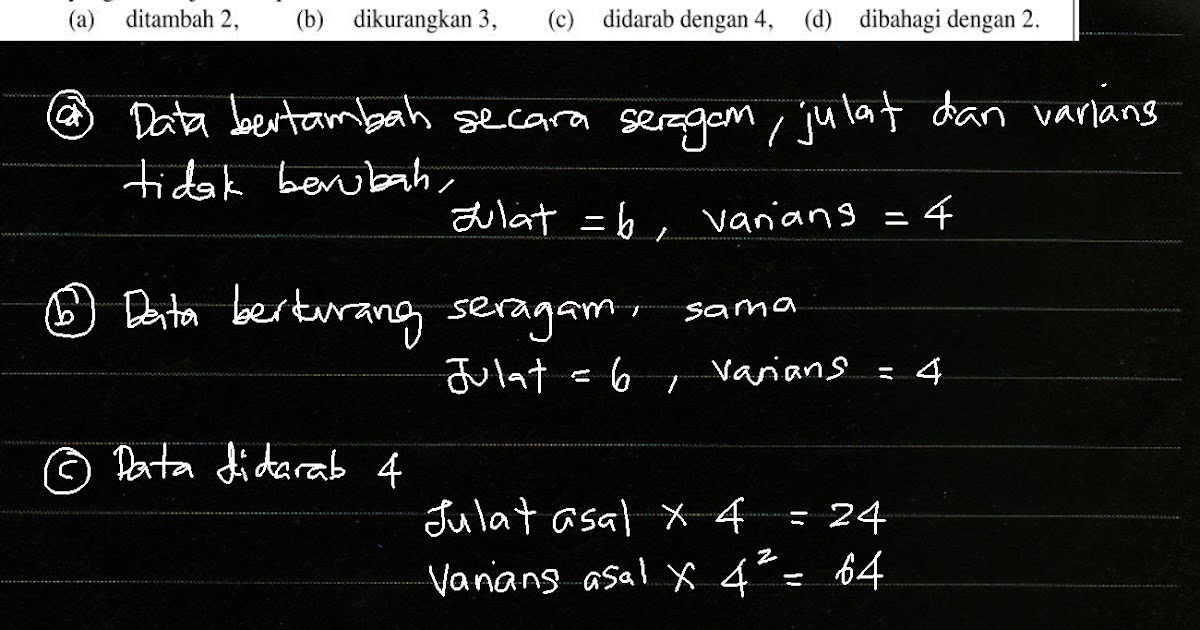 (a) ditambah 2, (b) dikurangkan 3, (c) didarab dengan 4, (d) dibahagi dengan 2.
(a) Data bertambah secara seragam, julat dan varians
tidak berubah,
Julat = 6, varians = 4
(b) Data berkurang seragam, sama
Julat = 6, varians = 4
(c) Data didarab 4
Julat asal × 4 = 24
Varians asal × 4² = 64